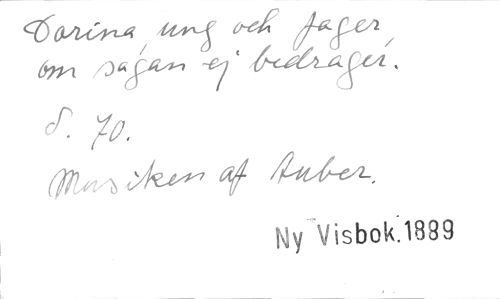 Dorina, ung och fager,
om sagan ej bedrager.
S. 70.
Musiken af Auber.
Ny Visbok.1889